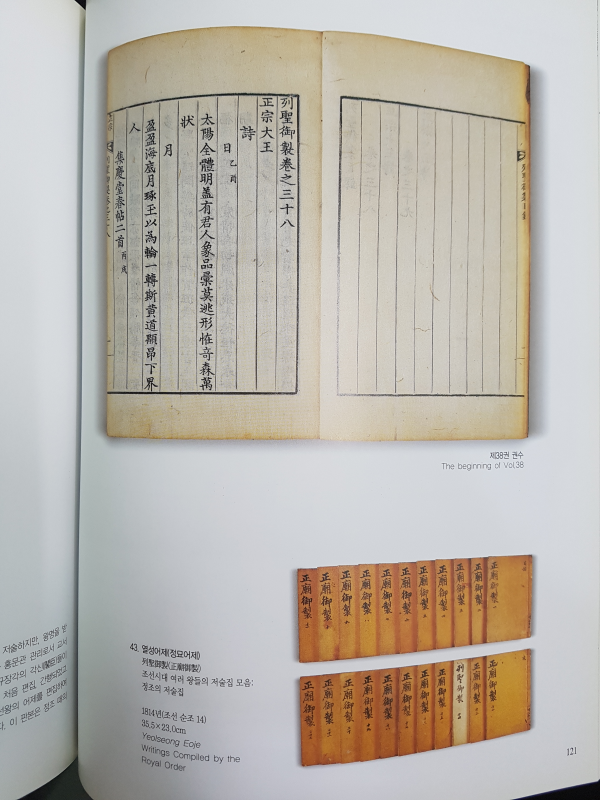 列聖御製卷之三十八
正宗大王
詩
日 乙酉
太陽全體明盖有君人象品彙莫逃形恠竒森萬
狀
月
盈盈海底月琢玉以為輪一轉斯黄道顒昂下界
人
集慶堂春帖二首 丙戌
제38권 권수
The beginning of Vol.38
正廟御製
正廟御製
正廟御製
正廟御製
正廟御製
正廟御製
正廟御製
正廟御製
正廟御製
正廟御製
正廟御製
正廟御製
列聖御製
正廟御製
正廟御製
正廟御製
正廟御製
正廟御製
正廟御製
正廟御製
43. 열성어제(정묘어제)
列聖御製(正廟御製)
조선시대 여러 왕들의 저술집 모음:
정조의 저술집
1814년(조선 순조 14)
35.5×23.0cm
Yeolseong Eoje
Writings Compiled by the
Royal Order
121
저술하지만, 왕명을 받
홍문관 관리로서 교서
규장각의 각신(閣臣)들이
처음 편집, 간행되었고
선왕의 어제를 편집하여
다. 이 판본은 정조 때에